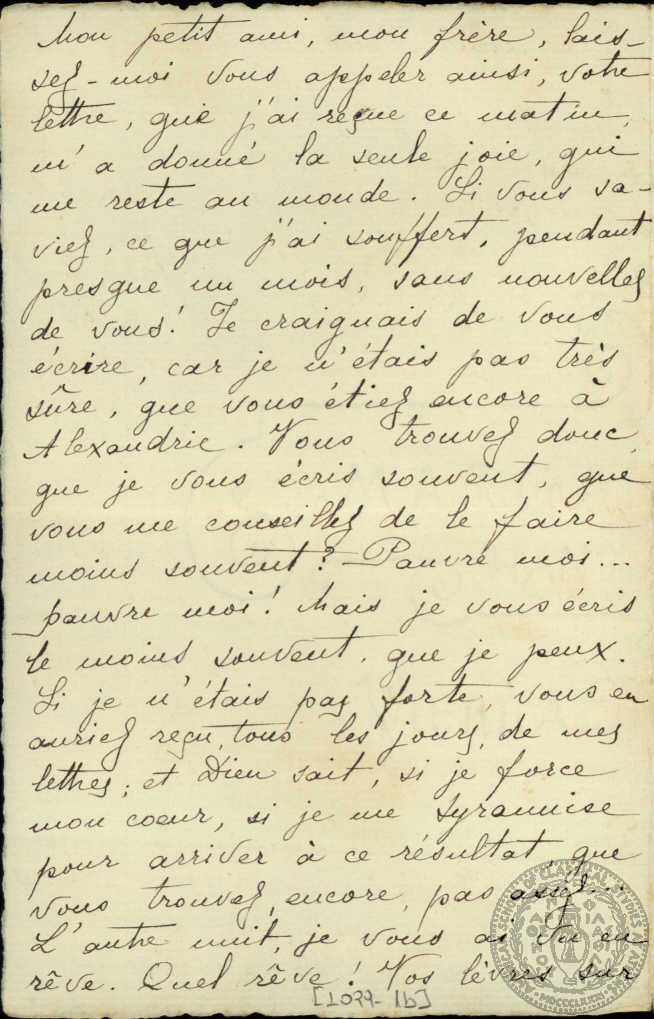 Mon petit ami, mon frère, lais-
sez-moi vous appeler ainsi, votre
lettre, que j'ai reçue ce matin,
m'a donné la seule joie, qui
me reste au monde. Si vous sa-
viez, ce que j'ai souffert, pendant
presque un mois, sans nouvelles
de vous! Je craignais de vous
écrire, car je n'étais pas très
sûre, que vous étiez encore à
Alexandrie. Vous trouvez donc,
que je vous écris souvent, que
vous me conseillez de le faire
moins souvent? - Pauvre moi...
pauvre moi! Mais je vous écris
le moins souvent, que je peux.
Si je n'étais pas forte, vous en
auriez reçu, tous les jours, de mes
lettres; et Dieu sait, si je force
mon coeur, si je me tyrannise
pour arriver à ce résultat, que
vous trouvez, encore, pas assez...
L'autre nuit, je vous ai vu en
rêve. Quel rêve! Vos lèvres sur
[1099-1b]